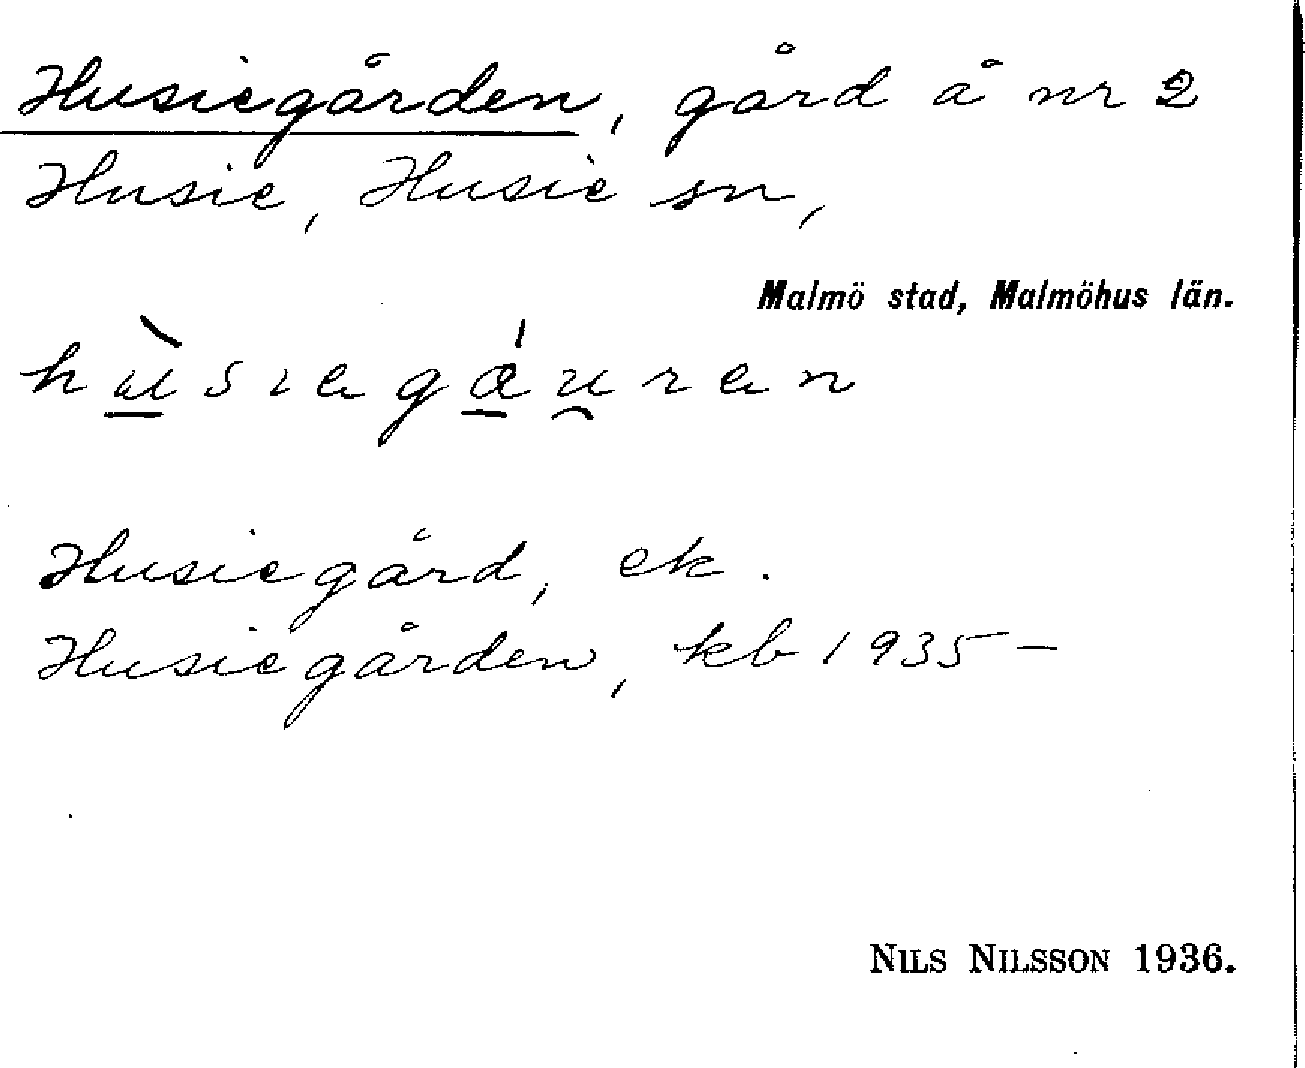 Husiegården, gård å nr 2
Husie, Husie sn,
Malmö stad, Malmöhus län.
Husiegård, ek.
Husiegården, kb 1935 –
NILS NILSSON 1936.